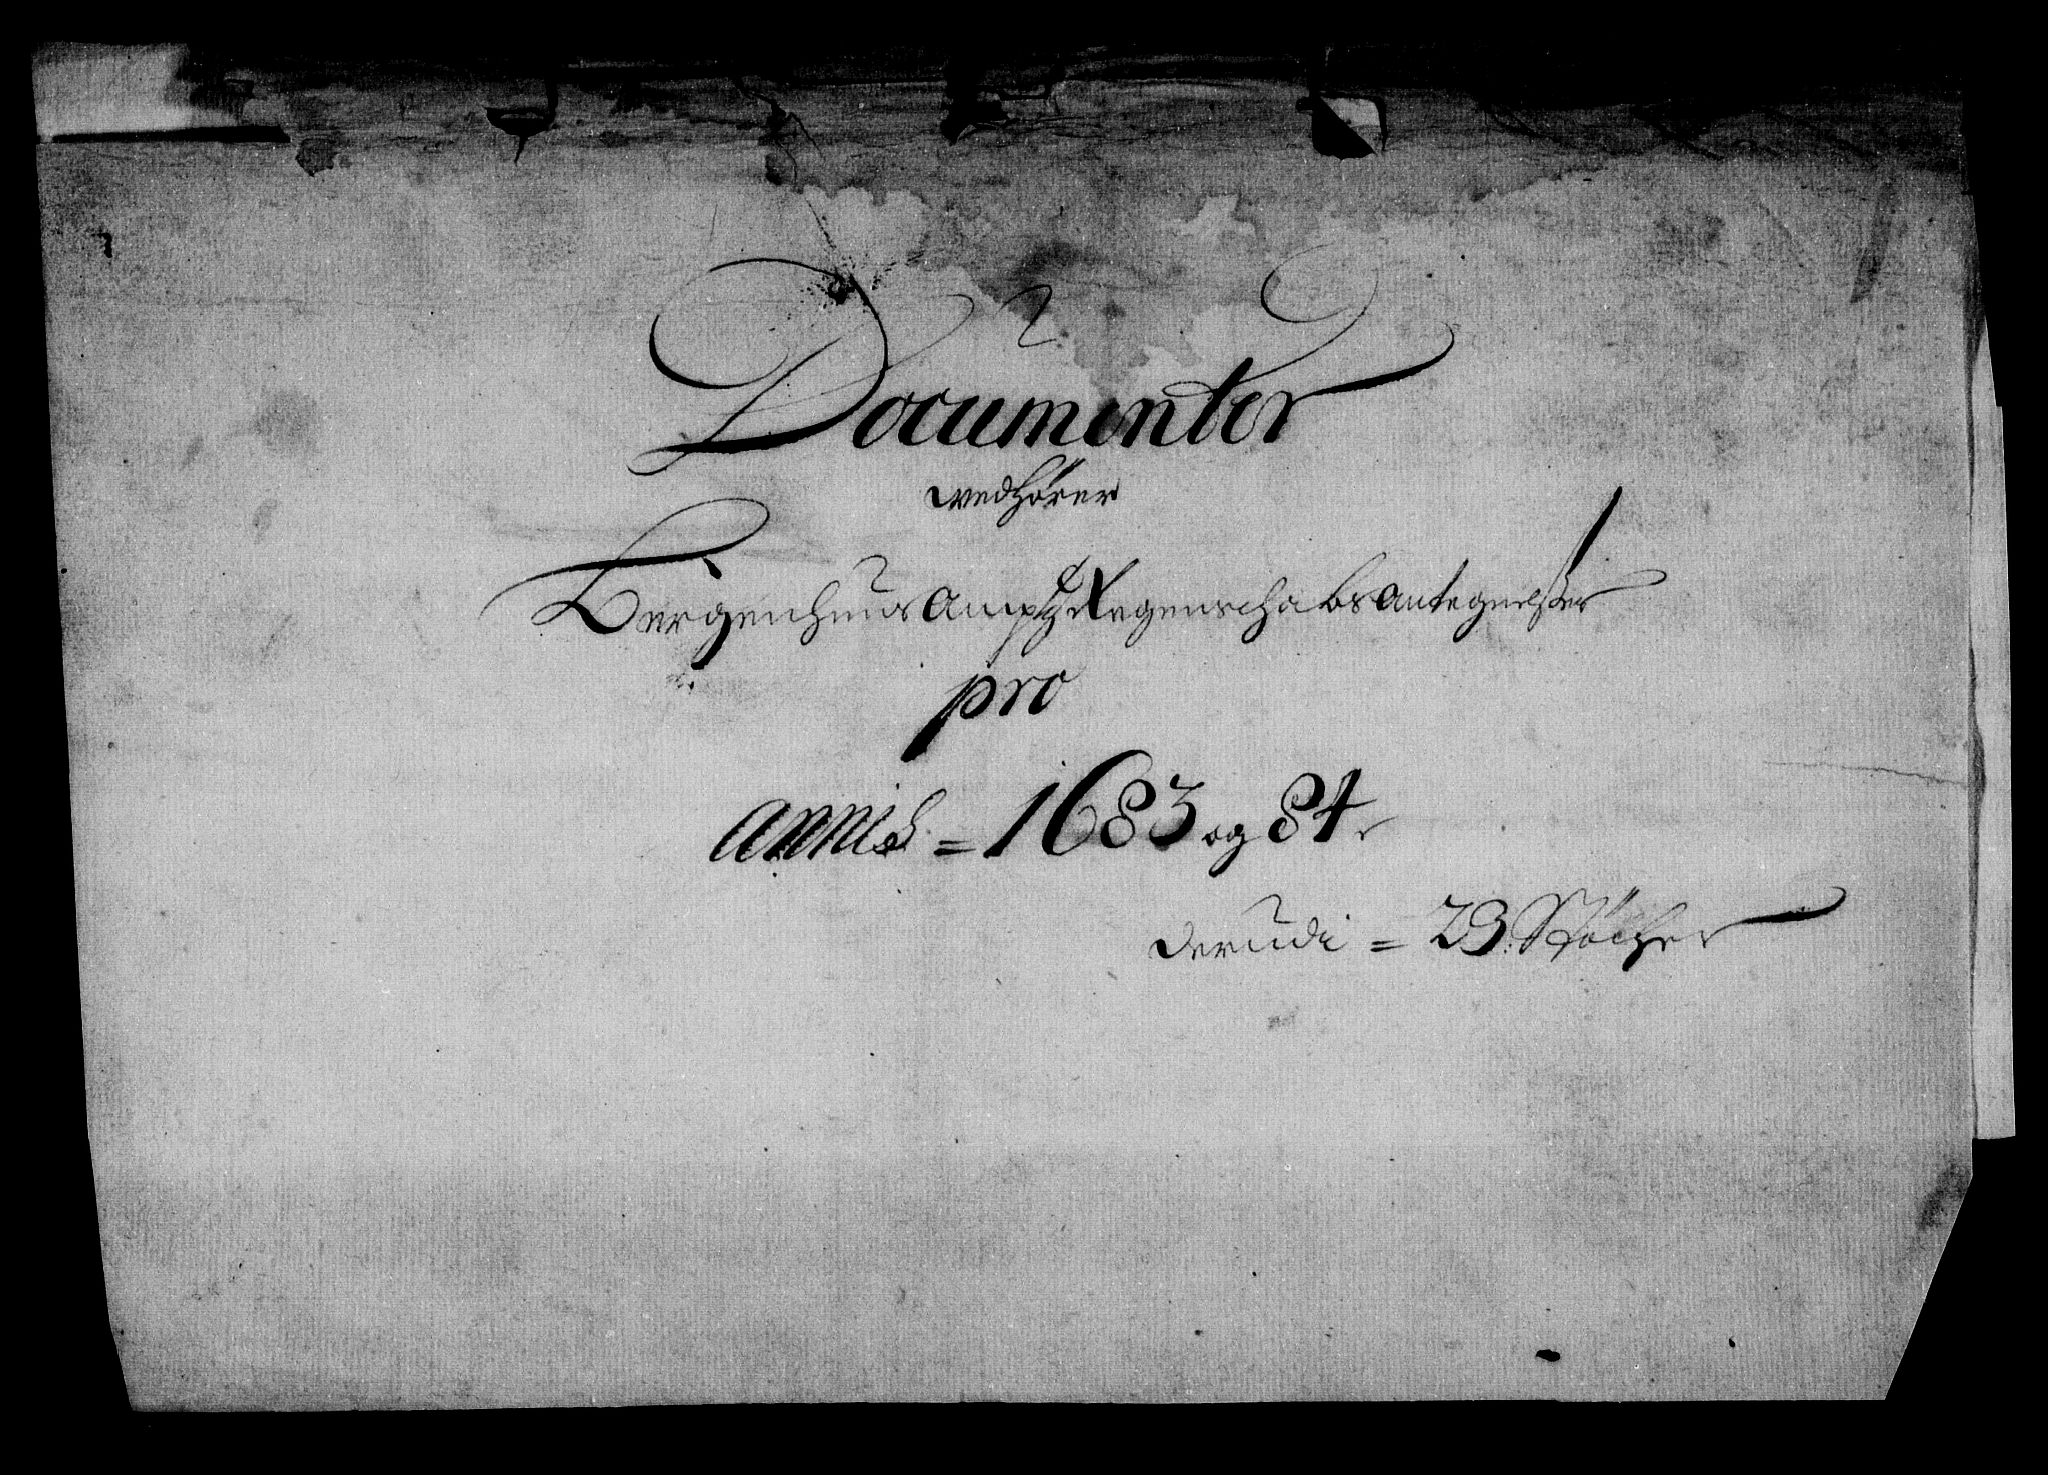 Documenter
vedhörer
Bergenhuus Amptz Regenschabs Antegnelsser
pro
Annis = 1683 og 84
derudi = 23 Stöcher